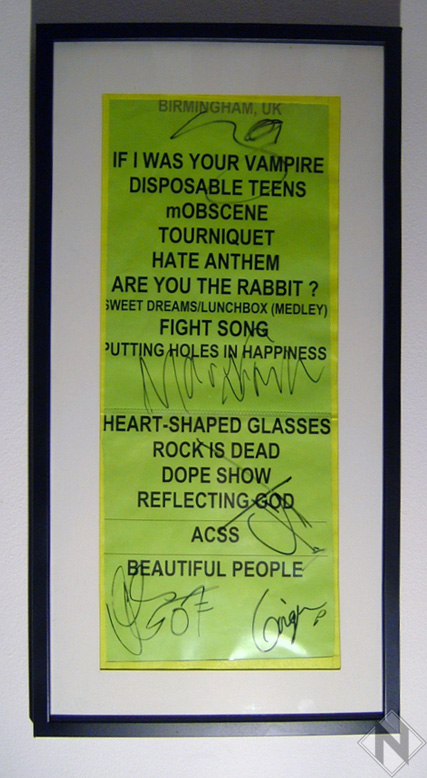 BIRMINGHAM, UK
IF I WAS YOUR VAMPIRE
DISPOSABLE TEENS
mOBSCENE
TOURNIQUET
HATE ANTHEM
ARE YOU THE RABBIT ?
SWEET DREAMS/LUNCHBOX (MEDLEY)
FIGHT SONG
PUTTING HOLES IN HAPPINESS
HEART-SHAPED GLASSES
ROCK IS DEAD
DOPE SHOW
REFLECTING GOD
ACSS
BEAUTIFUL PEOPLE
N